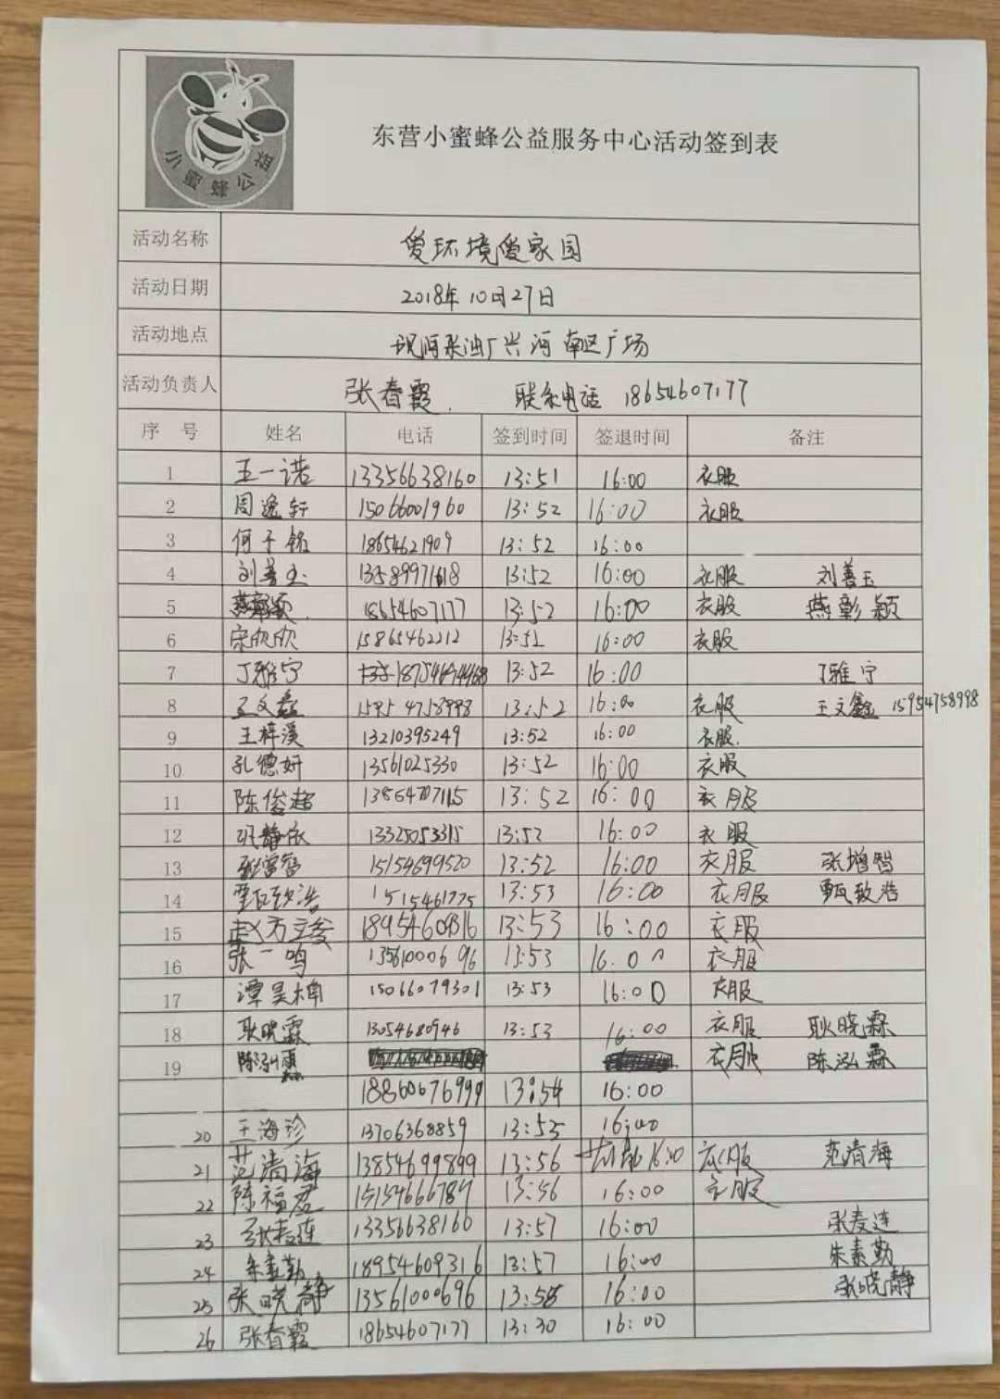 小蜜蜂公益
东营小蜜蜂公益服务中心活动签到表
活动名称 爱环境爱家园
活动日期 2018年10月27日
活动地点 现河采油厂兴河南区广场
活动负责人 张春霞. 联系电话 18654607177
序号 姓名 电话 签到时间 签退时间 备注
1 王一诺 13356638160 13:51 16:00 衣服
2 周逸轩 15066001960 13:52 16:00 衣服
3 何子铭 18654621909 13:52 16:00
4 刘善玉 13589971618 13:52 16:00 衣服 刘善玉
5 燕彰颖 18654607177 13:52 16:00 衣服 燕彰颖
6 宋欣欣 15865462212 13:51 16:00 衣服
7 丁雅宁 13:52 16:00 丁雅宁
8 王文鑫 15954758998 13:52 16:00 衣服 王文鑫 15954758998
9 王梓溪 13210395249 13:52 16:00 衣服.
10 孔德妍 13561025330 13:52 16:00 衣服
11 陈俊超 13864707115 13:52 16:00 衣服
12 张静依 13325053315 13:52 16:00 衣服
13 张增智 15154699520 13:52 16:00 衣服 张增智
14 甄致浩 1515461775 13:53 16:00 衣服 甄致浩
15 赵方立骏 18954609316 13:53 16:00 衣服
16 张一鸣 13561000696 13:53 16:00 衣服
17 谭昊楠 15066079301 13:53 16:00 衣服
18 耿晓霖 13054680946 13:53 16:00 衣服 耿晓霖
19 陈泓霖 衣服 陈泓霖
18860676999 13:54 16:00
20 王海珍 13706368859 13:55 16:00
21 范清海 13854699899 13:56 16:00 衣服 范清海
22 陈福君 15154666787 13:56 16:00 衣服
23 张麦连 13356638160 13:57 16:00 张麦连
24 朱素勤 18954609316 13:57 16:00 朱素勤
25 张晓静 13561000696 13:58 16:00 张晓静
26 张春霞 18654607177 13:30 16:00